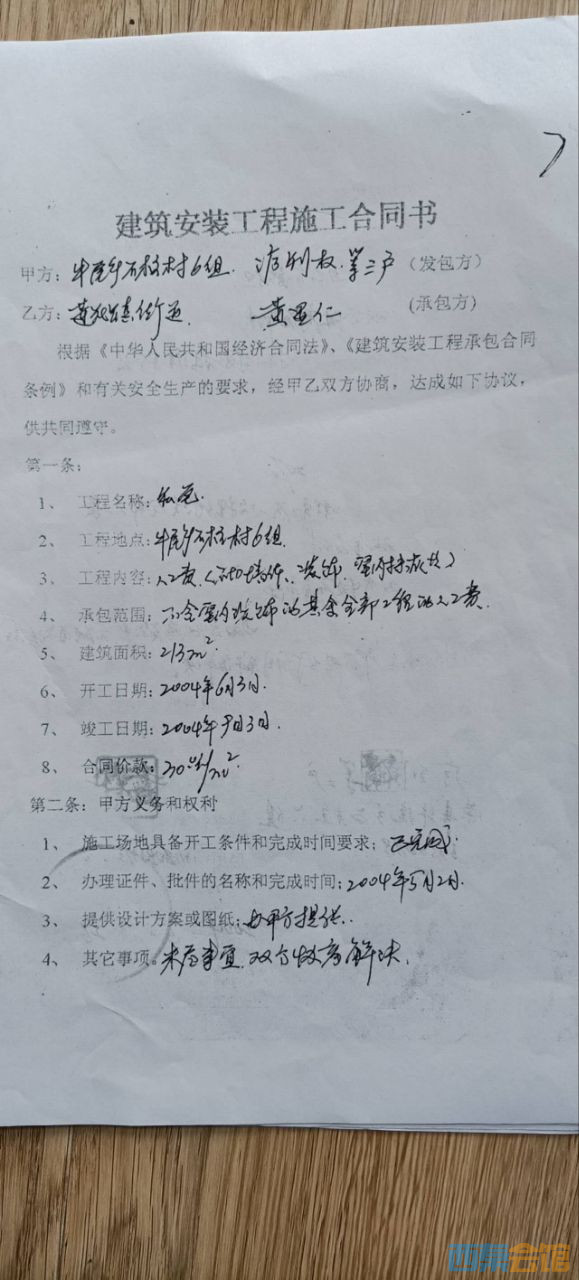 建筑安装工程施工合同书
甲方：牛尾乡石柱村6组. 权. 等三户（发包方）
乙方： 街道. 黄 仁 (承包方)
根据《中华人民共和国经济合同法》、《建筑安装工程承包合同
条例》和有关安全生产的要求，经甲乙双方协商，达成如下协议，
供共同遵守。
第一条：
1、 工程名称：私宅.
2、 工程地点：牛尾乡石柱村6组.
3、 工程内容：人工费（
4、 承包范围：不含室内装饰的其余全部工程的人工费.
5、 建筑面积：213m².
6、 开工日期：2004年6月3日.
7、 竣工日期：2004年9月3日.
8、 合同价款： /m²
第二条：甲方义务和权利
1、 施工场地具备开工条件和完成时间要求；已完成.
2、 办理证件、批件的名称和完成时间：2004年5月2日.
3、 提供设计方案或图纸：由甲方提供.
4、 其它事项。未尽事宜.双方协商解决.
西祠会馆